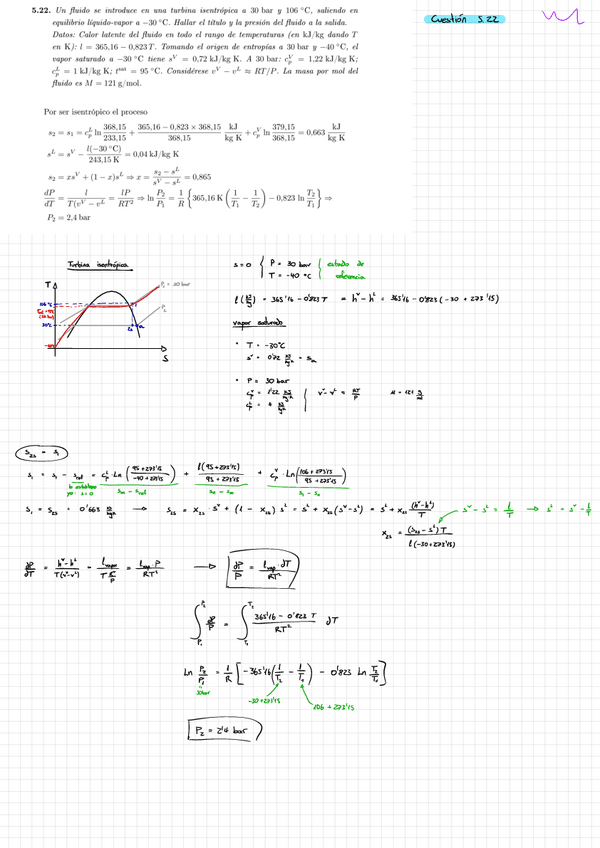 Cuestión 5.22
5.22. Un fluido se introduce en una turbina isentrópica a 30 bar y 106 °C, saliendo en
equilibrio líquido-vapor a −30 °C. Hallar el título y la presión del fluido a la salida.
Datos: Calor latente del fluido en todo el rango de temperaturas (en kJ/kg dando T
en K): l = 365,16 − 0,823 T. Tomando el origen de entropías a 30 bar y −40 °C, el
vapor saturado a −30 °C tiene s^V = 0,72 kJ/kg K. A 30 bar: c_p^V = 1,22 kJ/kg K;
c_p^L = 1 kJ/kg K; t^sat = 95 °C. Considérese v^V − v^L ≈ RT/P. La masa por mol del
fluido es M = 121 g/mol.
Por ser isentrópico el proceso
s_2 = s_1 = c_p^L ln 368,15/233,15 + (365,16 − 0,823 × 368,15)/368,15 kJ/kg K + c_p^V ln 379,15/368,15 = 0,663 kJ/kg K
s^L = s^V − l(−30 °C)/243,15 K = 0,04 kJ/kg K
s_2 = xs^V + (1 − x)s^L ⇒ x = (s_2 − s^L)/(s^V − s^L) = 0,865
dP/dT = l/T(v^V − v^L = lP/RT² ⇒ ln P_2/P_1 = 1/R {365,16 K (1/T_1 − 1/T_2) − 0,823 ln T_2/T_1} ⇒
P_2 = 2,4 bar
Turbina isentrópica
s=0 { P = 30 bar
T = -40 °C
estado de
referencia
T
P_1 = 30 bar
106°C
-30°C
S
l (kJ/kg) = 365'16 − 0'823 T = h^v − h^L = 365'16 − 0'823 (−30 + 273'15)
vapor saturado
• T = −30°C
s^v = 0'72 kJ/kgK = s_a
• P = 30 bar
c_p^v = 1'22 kJ/kgK
c_p^L = 1 kJ/kgK
v^v − v^L = RT/P
M = 121 g/mol
s_2s = s_1
s_1 = s_1 − s_ref = c_p^L · Ln (95+273'15/−40+273'15) + l(95+273'15)/95+273'15 + c_p^v · Ln (106+273'15/95+273'15)
s_1 = s_2s = 0'663 kJ/kgK → s_2s = x_2s · s^v + (1 − x_2s) s^L = s^L + x_2s (s^v − s^L) = s^L + x_2s (h^v − h^L)/T
s^v − s^L = l/T → s^L = s^v − l/T
x_2s = (s_2s − s^L) T / l(−30+273'15)
dP/dT = h^v − h^L / T(v^v − v^L) = l_vap / T RT/P = l_vap · P / RT² → dP/P = l_vap · dT / RT²
∫_P1^P2 dP/P = ∫_T1^T2 365'16 − 0'823 T / RT² dT
Ln P_2/P_1 = 1/R [ −365'16 (1/T_2 − 1/T_1) − 0'823 Ln T_2/T_1 ]
30bar
−30+273'15
106 + 273'15
P_2 = 2'4 bar